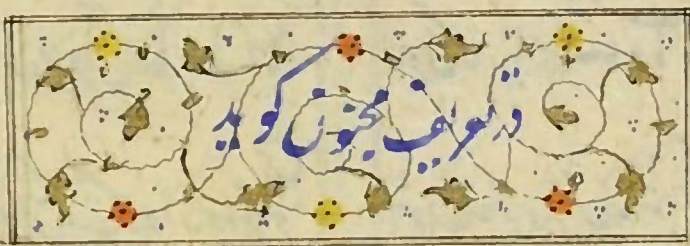 در تعریف مجنون کوید